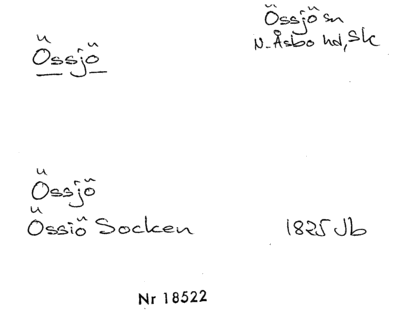 Össjö
Össjö sn
N. Åsbo hd, Sk
Össjö
Össiö Socken 1825 Jb
Nr 18522